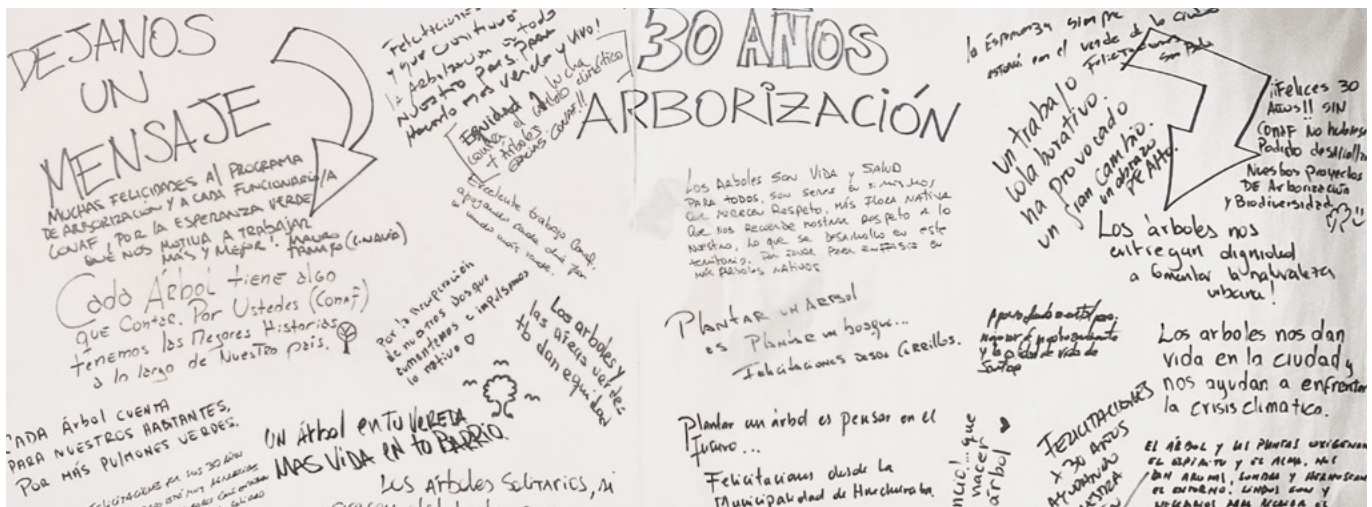 DEJANOS
UN
MENSAJE
MUCHAS FELICIDADES AL PROGRAMA
DE ARBORIZACION Y A CADA FUNCIONARIO/A
CONAF, POR LA ESPERANZA VERDE
QUE NOS MOTIVA A TRABAJAR
MÁS Y MEJOR!
Cada Árbol tiene algo
que Contar. Por Ustedes (Conaf)
tenemos las Mejores Historias
a lo largo de Nuestro país.
CADA Árbol CUENTA
PARA NUESTROS HABITANTES,
POR MÁS PULMONES VERDES.
Felicitaciones
y que continue
la Arborizacion en todo
Nuestro País para
Mundo mas verde y vivo!
Equidad
lucha
contra el cambio climático
+ Árboles
GRACIAS CONAF!!
Excelente trabajo Conaf,
apoyando cada día por
un mundo más verde.
Por la recuperación
de nuestros bosques
aumentemos e impulsemos
lo nativo
Los arboles y
las áreas verdes
dan equidad
UN Árbol en TU VEREDA
MAS VIDA en tu BARRIO.
Los Árboles Solitarios, si
30 AÑOS
ARBORIZACIÓN
Los Arboles Son Vida y Salud
Para todos, son seres en si mismos
Que merecen Respeto, más Flora Nativa
Que Nos Recuerde mostrar respeto a lo
Nuestro, lo que se desarrollo en este
territorio. Por favor poner énfasis en
más Árboles nativos
Plantar un Arbol
es Plantar un bosque...
Felicitaciones desde Cerrillos.
Plantar un árbol es pensar en el
Futuro...
Felicitaciones desde la
Municipalidad de Huechuraba.
la Esperanza siempre
estará en el verde de la ciudad
un trabajo
colaborativo.
ha provocado
un gran cambio.
un abrazo
PE Alto.
¡¡Felices 30
Años!! SIN
CONAF No hubiese
Podido desarrollar
Nuestros Proyectos
DE Arborización
y Biodiversidad
Los árboles nos
entregan dignidad
a fomentar la naturaleza
urbana!
y la calidad de vida de
Los arboles nos dan
vida en la ciudad y
nos ayudan a enfrentar
la crisis climatica.
que
nacer
árbol
FELICITACIONES
X 30 AÑOS
AYUDANDO
EL ÁRBOL Y LAS PLANTAS OXIGENAN
EL ESPIRITU Y EL ALMA, NOS
DAN AROMA, SOMBRA Y HERMOSEAN
EL ENTORNO. LINDOS SON Y